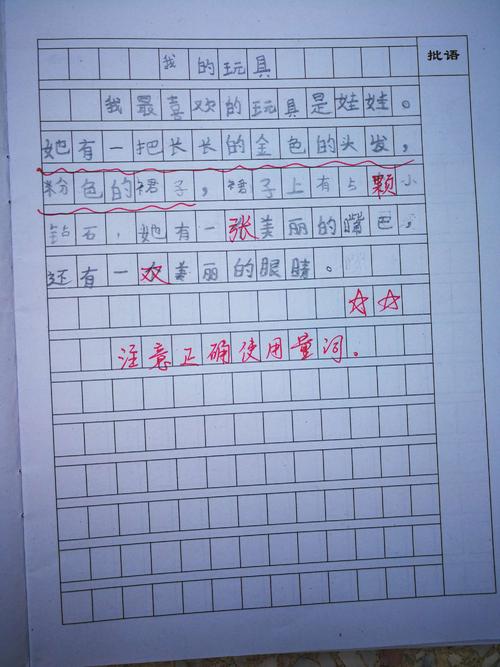 批语
我的玩具
我最喜欢的玩具是娃娃。
她有一把长长的金色的头发，
粉色的裙子，裙子上有5颗小
钻石，她有一张美丽的嘴巴，
还有一双美丽的眼睛。
☆☆
注意正确使用量词。